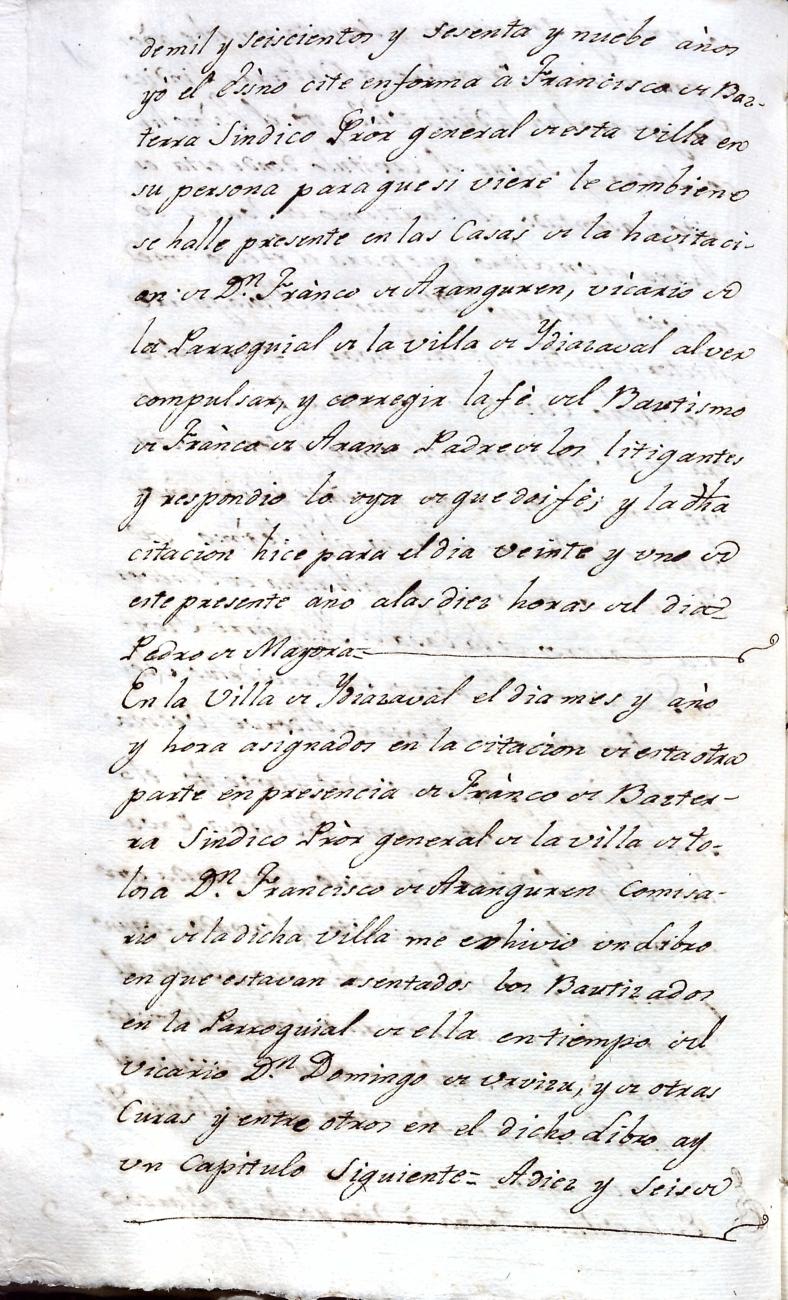 demil y seiscientos y sesenta y nuebe años
yò el Essno cite enforma â Francisco de Baz-
terra Sindico Pròr general de esta villa en
su persona para que si viere le combiene
se halle presente en las Casas de la havitaci-
on de Dn. Frànco de Aranguren, vicario de
la Parroquial de la villa de Ydiazaval al ver
compulsar, y corregir la fè del Bautismo
de Frànco de Arana Padre de los litigantes
y respondio lo oya de que doi fè; y la dha
citacion hice para el dia veinte y uno de
este presente año alas diez horas del dia=
Pedro de Mayora=
En la Villa de Ydiazaval el dia mes y año
y hora asignados en la citacion de esta otra
parte en presencia de Frànco de Bazter-
ra Sindico Pròr general de la villa de to-
losa Dn. Francisco de Aranguren Comisa-
rio de la dicha villa me exhivio un Libro
en que estavan asentados los Bautizados
en la Parroquial de ella en tiempo del
vicario Dn. Domingo de Urvizu, y de otras
Curas ÿ entre otros en el dicho Libro ay
un Capitulo Siguiente= A diez y seis de